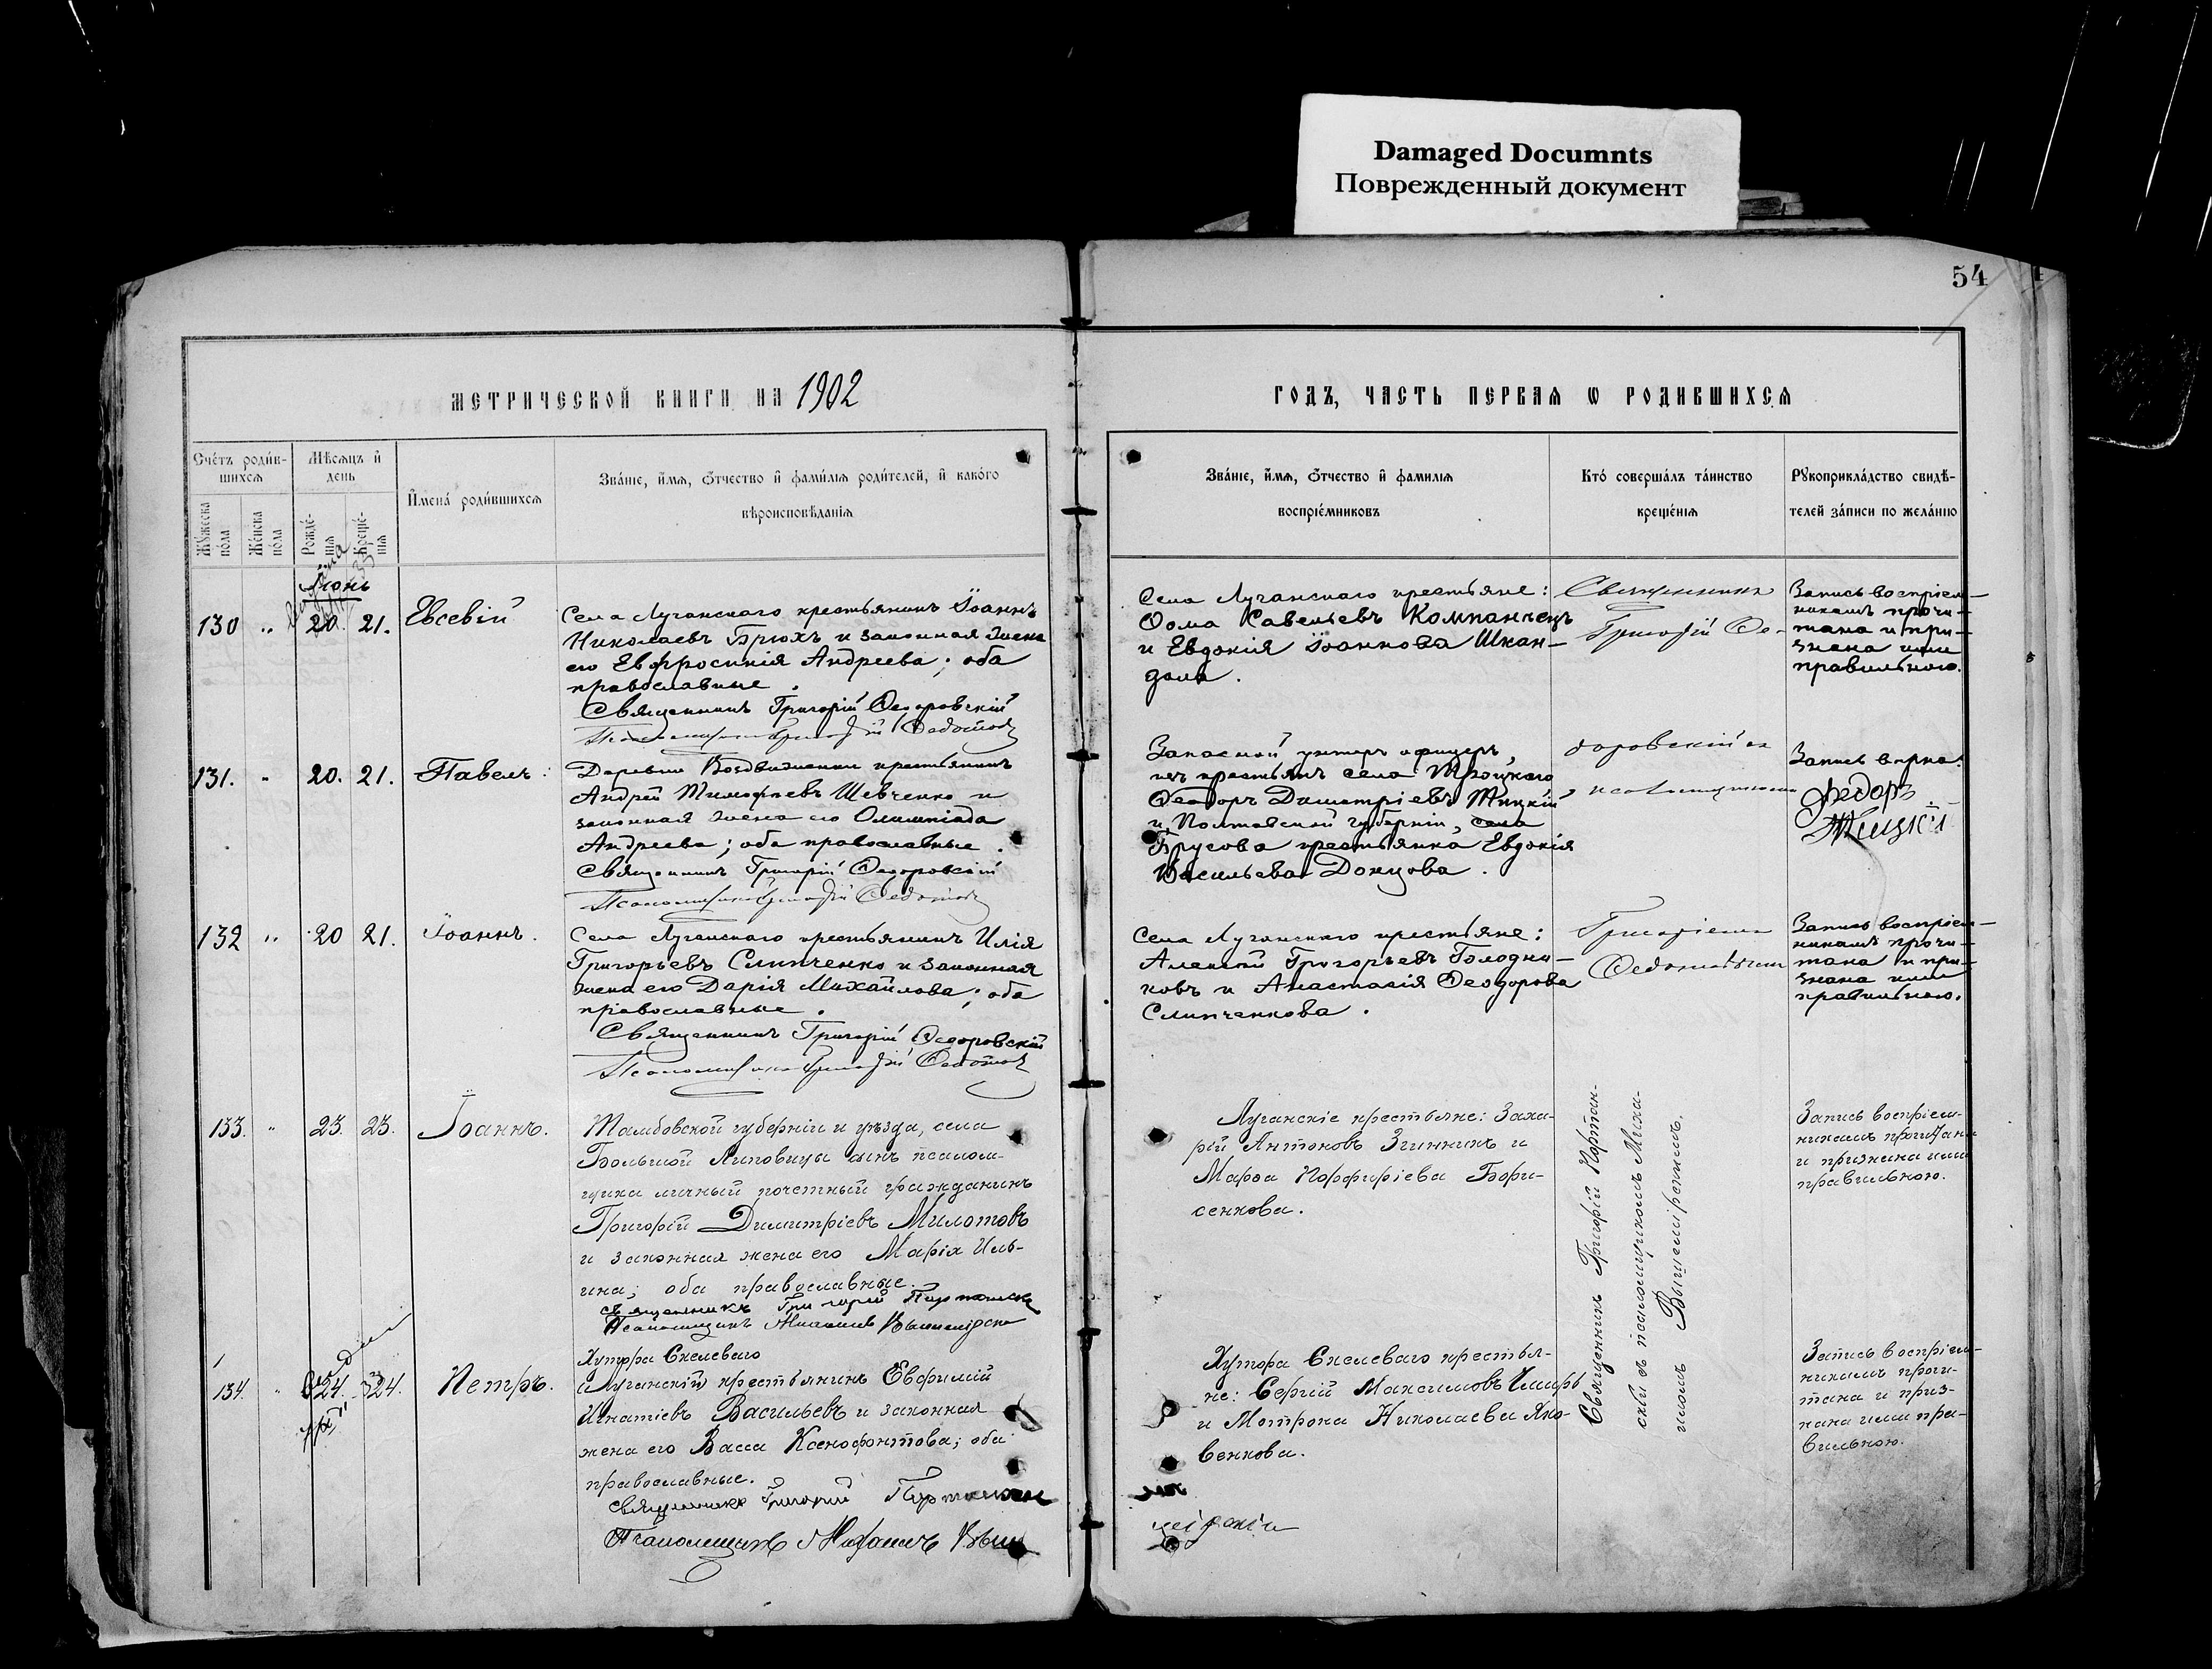 Damaged Documnts
Поврежденный документ
54
МЕТРИЧЕСКОЙ КНИГИ НА 1902
ГОДЪ, ЧАСТЬ ПЕРВАЯ Ѡ РОДИВШИХСЯ
Сче́тъ роди́в-
шихся
Мѣсяцъ и҆
день
И҆мена́ роди́вшихся
Зва́нїе, и҆́мя, ѻ҆́тчество и҆ фами́лїя роди́телей, и҆ како́го
вѣроисповѣ́данїя
Мꙋ́жеска
по́ла
Же́нска
по́ла
Рожде́-
нїя
Креще́-
нїя
Зва́нїе, и҆́мя, ѻ҆́тчество и҆ фамилїя
воспрїе́мниковъ
Кто́ соверша́лъ та́инство
креще́нїя
Рꙋкоприкла́дство свидѣ́-
телей за́писи по жела́нїю
Іюнь
130 " 20. 21. Евсевій
Села Луганскаго крестьянинъ Іоаннъ
Николаевъ Брюхъ и законная жена
его Евфросинія Андреева; оба
православные.
Священникъ Григорій Ѳедоровскій
Псаломщикъ Григорій Ѳедотовъ
Села Луганскаго крестьяне:
Ѳома Савельевъ Компанчецъ
и Евдокія Іоаннова Шкан-
дала.
Священникъ
Григорій Ѳе-
Запись воспріем-
никамъ прочи-
тана и при-
знана ими
правильною.
131. " 20. 21. Павелъ.
Деревни Воздвиженки крестьянинъ
Андрей Тимофеевъ Шевченко и
законная жена его Олимпіада
Андреева; оба православные.
Священникъ Григорій Ѳедоровскій
Псаломщикъ Григорій Ѳедотовъ
Запасной унтеръ офицеръ,
изъ крестьянъ села Троицкаго
Ѳеодоръ Димитріевъ Тицкій
и, Полтавской губерніи, села
Брусова крестьянка Евдокія
Васильева Донцова.
доровскій съ
псаломщикомъ
Запись верна:
Федоръ
Тицкій
132 " 20 21. Іоаннъ.
Села Луганскаго крестьянинъ Илія
Григорьевъ Слипченко и законная
жена его Дарія Михайлова; оба
православные.
Священникъ Григорій Ѳедоровскій
Псаломщикъ Григорій Ѳедотовъ
Села Луганскаго крестьяне:
Алексей Григорьевъ Голодни-
ковъ и Анастасія Ѳеодорова
Слипченкова.
Григоріемъ
Ѳедотовымъ
Запись воспріем-
никамъ прочи-
тана и при-
знана ими
правильною.
133. " 23. 23. Іоаннъ.
Тамбовской губерніи и уѣзда, села
Большой Липовицы сынъ псалом-
щика личный почетный гражданинъ
Григорій Димитріевъ Милотовъ
и законная жена его Марія Иль-
ина; оба православные.
Священникъ Григорій
Псаломщикъ Михаилъ
Луганскіе крестьяне: Заха-
рій Антоновъ Згинникъ и
Марѳа Порфиріева Бори-
сенкова.
Священникъ Григорій Портан-
скій съ псаломщикомъ Миха-
иломъ
Запись воспріем-
никамъ прочитана
и признана ими
правильною.
134. " 24. 24. Петръ.
Хутора Скелеваго
Луганскій крестьянинъ Евфимій
Игнатіевъ Васильевъ и законная
жена его Васса Ксенофонтова; оба
православные.
Священникъ Григорій
Псаломщикъ Михаилъ
Хутора Скелеваго крестья-
не: Сергій Максимовъ
и Мотрона Николаева Яко-
венкова.
Запись воспріем-
никамъ прочи-
тана и приз-
нана ими пра-
вильною.